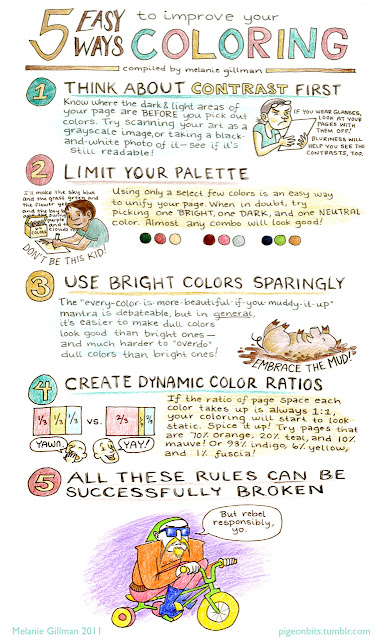 5 EASY WAYS to improve your
COLORING
compiled by melanie gillman
1 THINK ABOUT CONTRAST FIRST
Know where the dark & light areas of
your page are BEFORE you pick out
colors. Try scanning your art as a
grayscale image, or taking a black-
and-white photo of it - see if it's
still readable!
IF YOU WEAR GLASSES,
LOOK AT YOUR
PAGES WITH
THEM OFF!
BLURINESS WILL
HELP YOU SEE THE
CONTRASTS, TOO.
2 LIMIT YOUR PALETTE
I'll make the sky blue
and the grass green and
the flower
and the
DON'T BE THIS KID!
Using only a select few colors is an easy way
to unify your page. When in doubt, try
picking one BRIGHT, one DARK, and one NEUTRAL
color. Almost any combo will look good!
3 USE BRIGHT COLORS SPARINGLY
The "every-color-is-more-beautiful-if-you-muddy-it-up"
mantra is debateable, but in general,
it's easier to make dull colors
look good than bright ones—
and much harder to "overdo"
dull colors than bright ones!
EMBRACE THE MUD!
4 CREATE DYNAMIC COLOR RATIOS
1/3 1/3 1/3 vs. 2/3
YAWN. YAY!
If the ratio of page space each
color takes up is always 1:1,
your coloring will start to look
static. Spice it up! Try pages that
are 70% orange, 20% teal, and 10%
mauve! Or 93% indigo, 6% yellow,
and 1% fuscia!
5 ALL THESE RULES CAN BE
SUCCESSFULLY BROKEN
But rebel
responsibly,
yo.
Melanie Gillman 2011
pigeonbits.tumblr.com